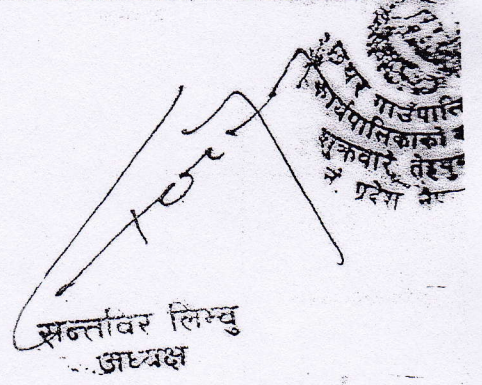 छथर गाउँपालि
कार्यपालिकाको
शुक्रबारे, तेह्रथु
नं. प्रदेश नेपा
सन्तविर लिम्बु
अध्यक्ष